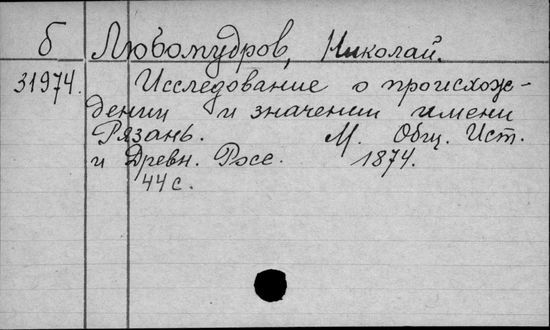 б Любомудров, Николай.
31974. Исследование о происхож-
дении и значении имени
Рязань. М. Общ. Ист.
и Древн. Росс. 1874.
44 с.